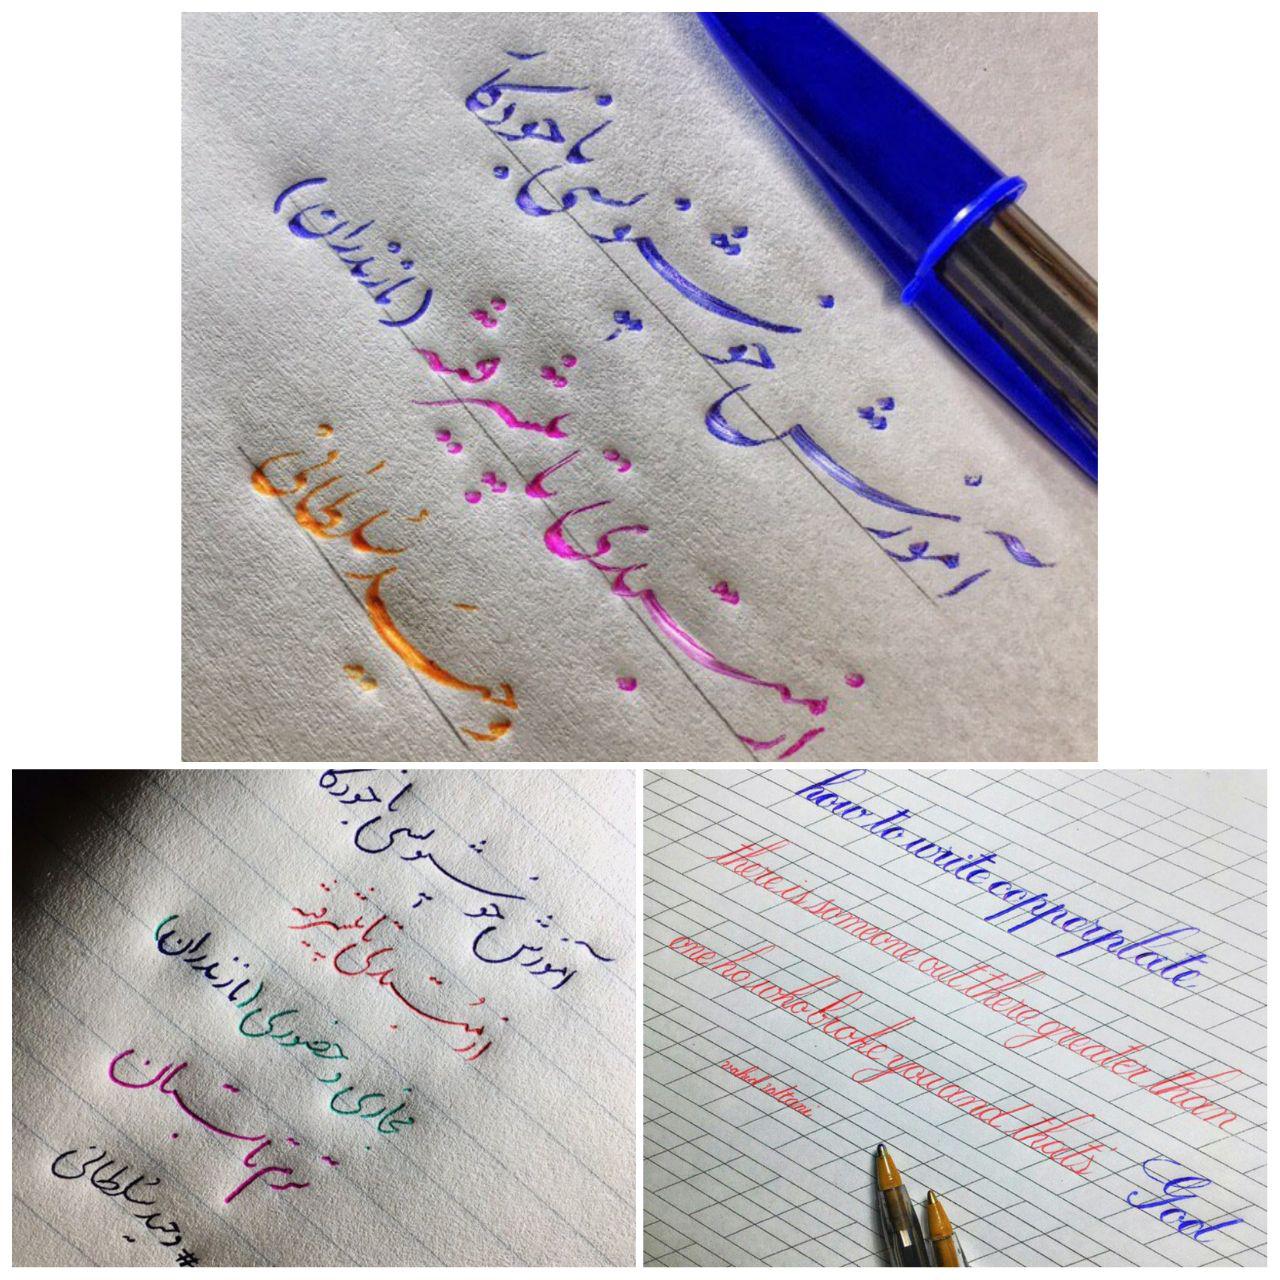 آموزش خوشنویسی با خودکار
از مبتدی تا پیشرفته
(مازندران)
وحید سلطانی
آموزش خوشنویسی با خودکار
از مُبتدی تا پیشرفته
مجازی و حضوری (مازندران)
ترم تابستان
#وحید سُلطانی
how to write copporplate
there is someone out there greater than
one ho who broke you and that's
God
vahid soltani